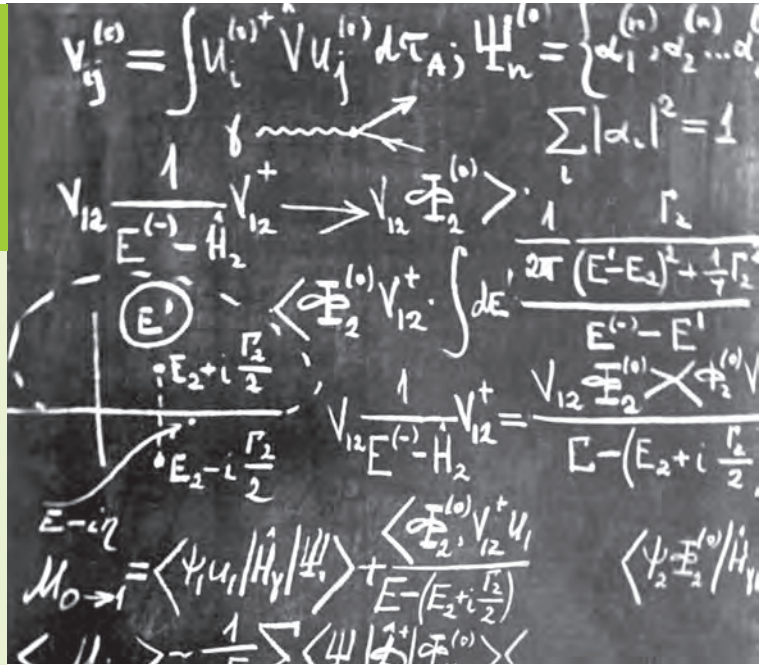 V_{ij}^{(0)} = ∫ U_i^{(0)+} V̂ U_j^{(0)} dτ_A; Ψ_n^{(0)} = {α_1^{(n)}, α_2^{(n)} ... α
γ
∑_i |α_i|^2 = 1
V_{12} \frac{1}{E^{(-)} - Ĥ_2} V_{12}^+ → V_{12} Φ_2^{(0)} > ·
< Φ_2^{(0)} V_{12}^+ · ∫ dE' \frac{\frac{1}{2π} \frac{Γ_2}{(E' - E_2)^2 + \frac{1}{4} Γ_2^2}}{E^{(-)} - E'}
E'
E_2 + i \frac{Γ_2}{2}
E_2 - i \frac{Γ_2}{2}
E - iη
V_{12} \frac{1}{E^{(-)} - Ĥ_2} V_{12}^+ = \frac{V_{12} Φ_2^{(0)} > < Φ_2^{(0)} V}{E - (E_2 + i \frac{Γ_2}{2}}
M_{0→1} = < Ψ_1 U_1 | Ĥ_γ | Ψ_i > + \frac{< Φ_2^{(0)} V_{12}^+ U_1}{E - (E_2 + i \frac{Γ_2}{2})} < Ψ_2 Φ_2^{(0)} / Ĥ_γ